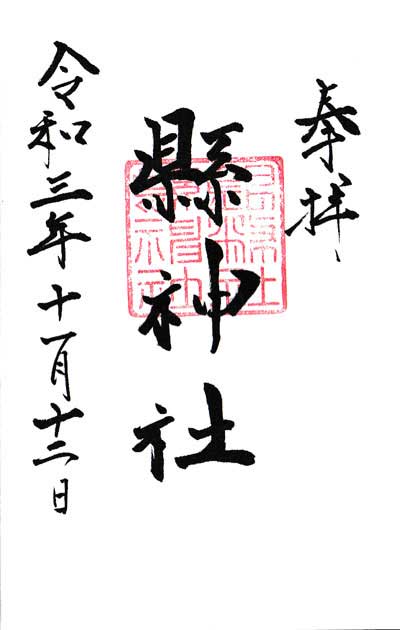 奉拝
縣神社
令和三年十一月十二日